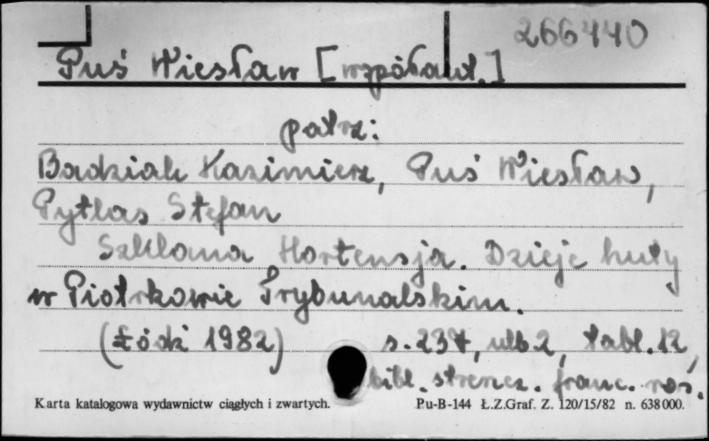 266440
Puś Wiesław [współaut.]
patrz:
Badziak Kazimierz, Puś Wiesław,
Pytlas Stefan
Szklana Hortensja. Dzieje huty
w Piotrkowie Trybunalskim.
(Łódź 1982) s. 237, nlb. 2, tabl. 12,
bibl. streszcz. franc. ros.
Karta katalogowa wydawnictw ciągłych i zwartych. Pu-B-144 Ł.Z.Graf. Z. 120/15/82 n. 638000.